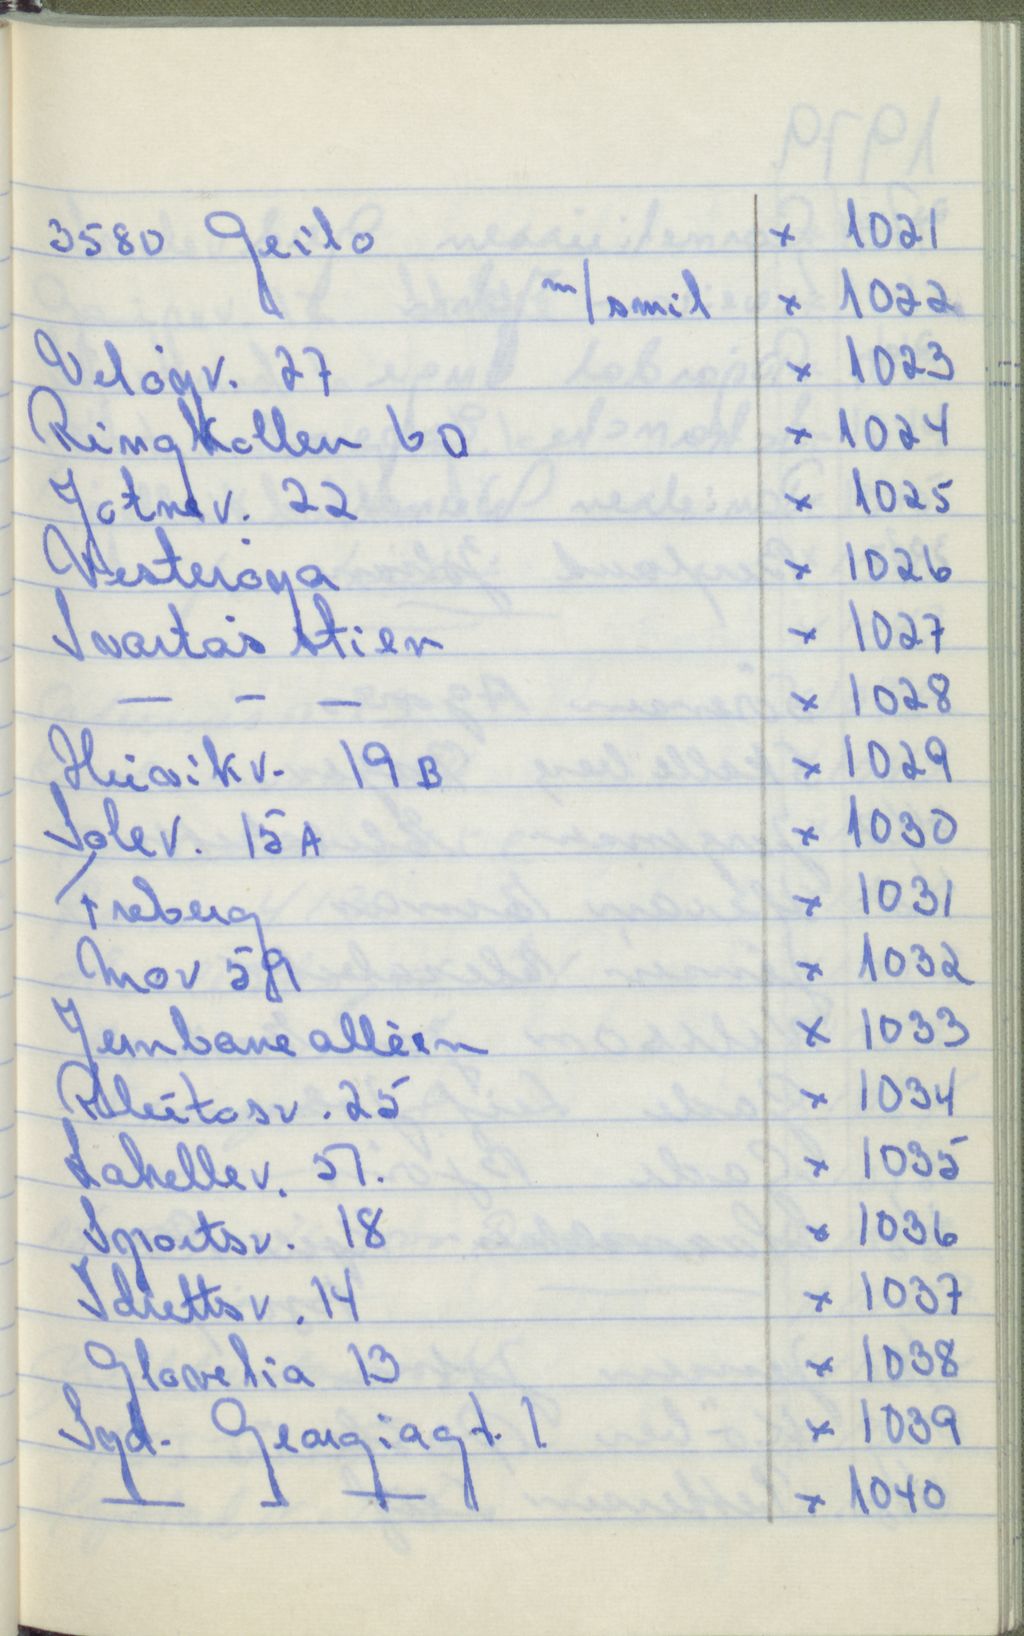 3580 Geilo x 1021
m/smil x 1022
Veløyv. 27 x 1023
Ringkollen 6D x 1024
Jotnev. 22 x 1025
Vesterøya x 1026
Svartås stien x 1027
— - — x 1028
Huvikv. 19B x 1029
Solev. 15A x 1030
Freberg x 1031
Mov 59 x 1032
Jernbanealléen x 1033
25 x 1034
Lahellev. 57. x 1035
Sportsv. 18 x 1036
Idrettsv. 14 x 1037
13 x 1038
Syd. Georgiagt. 1 x 1039
— - — x 1040